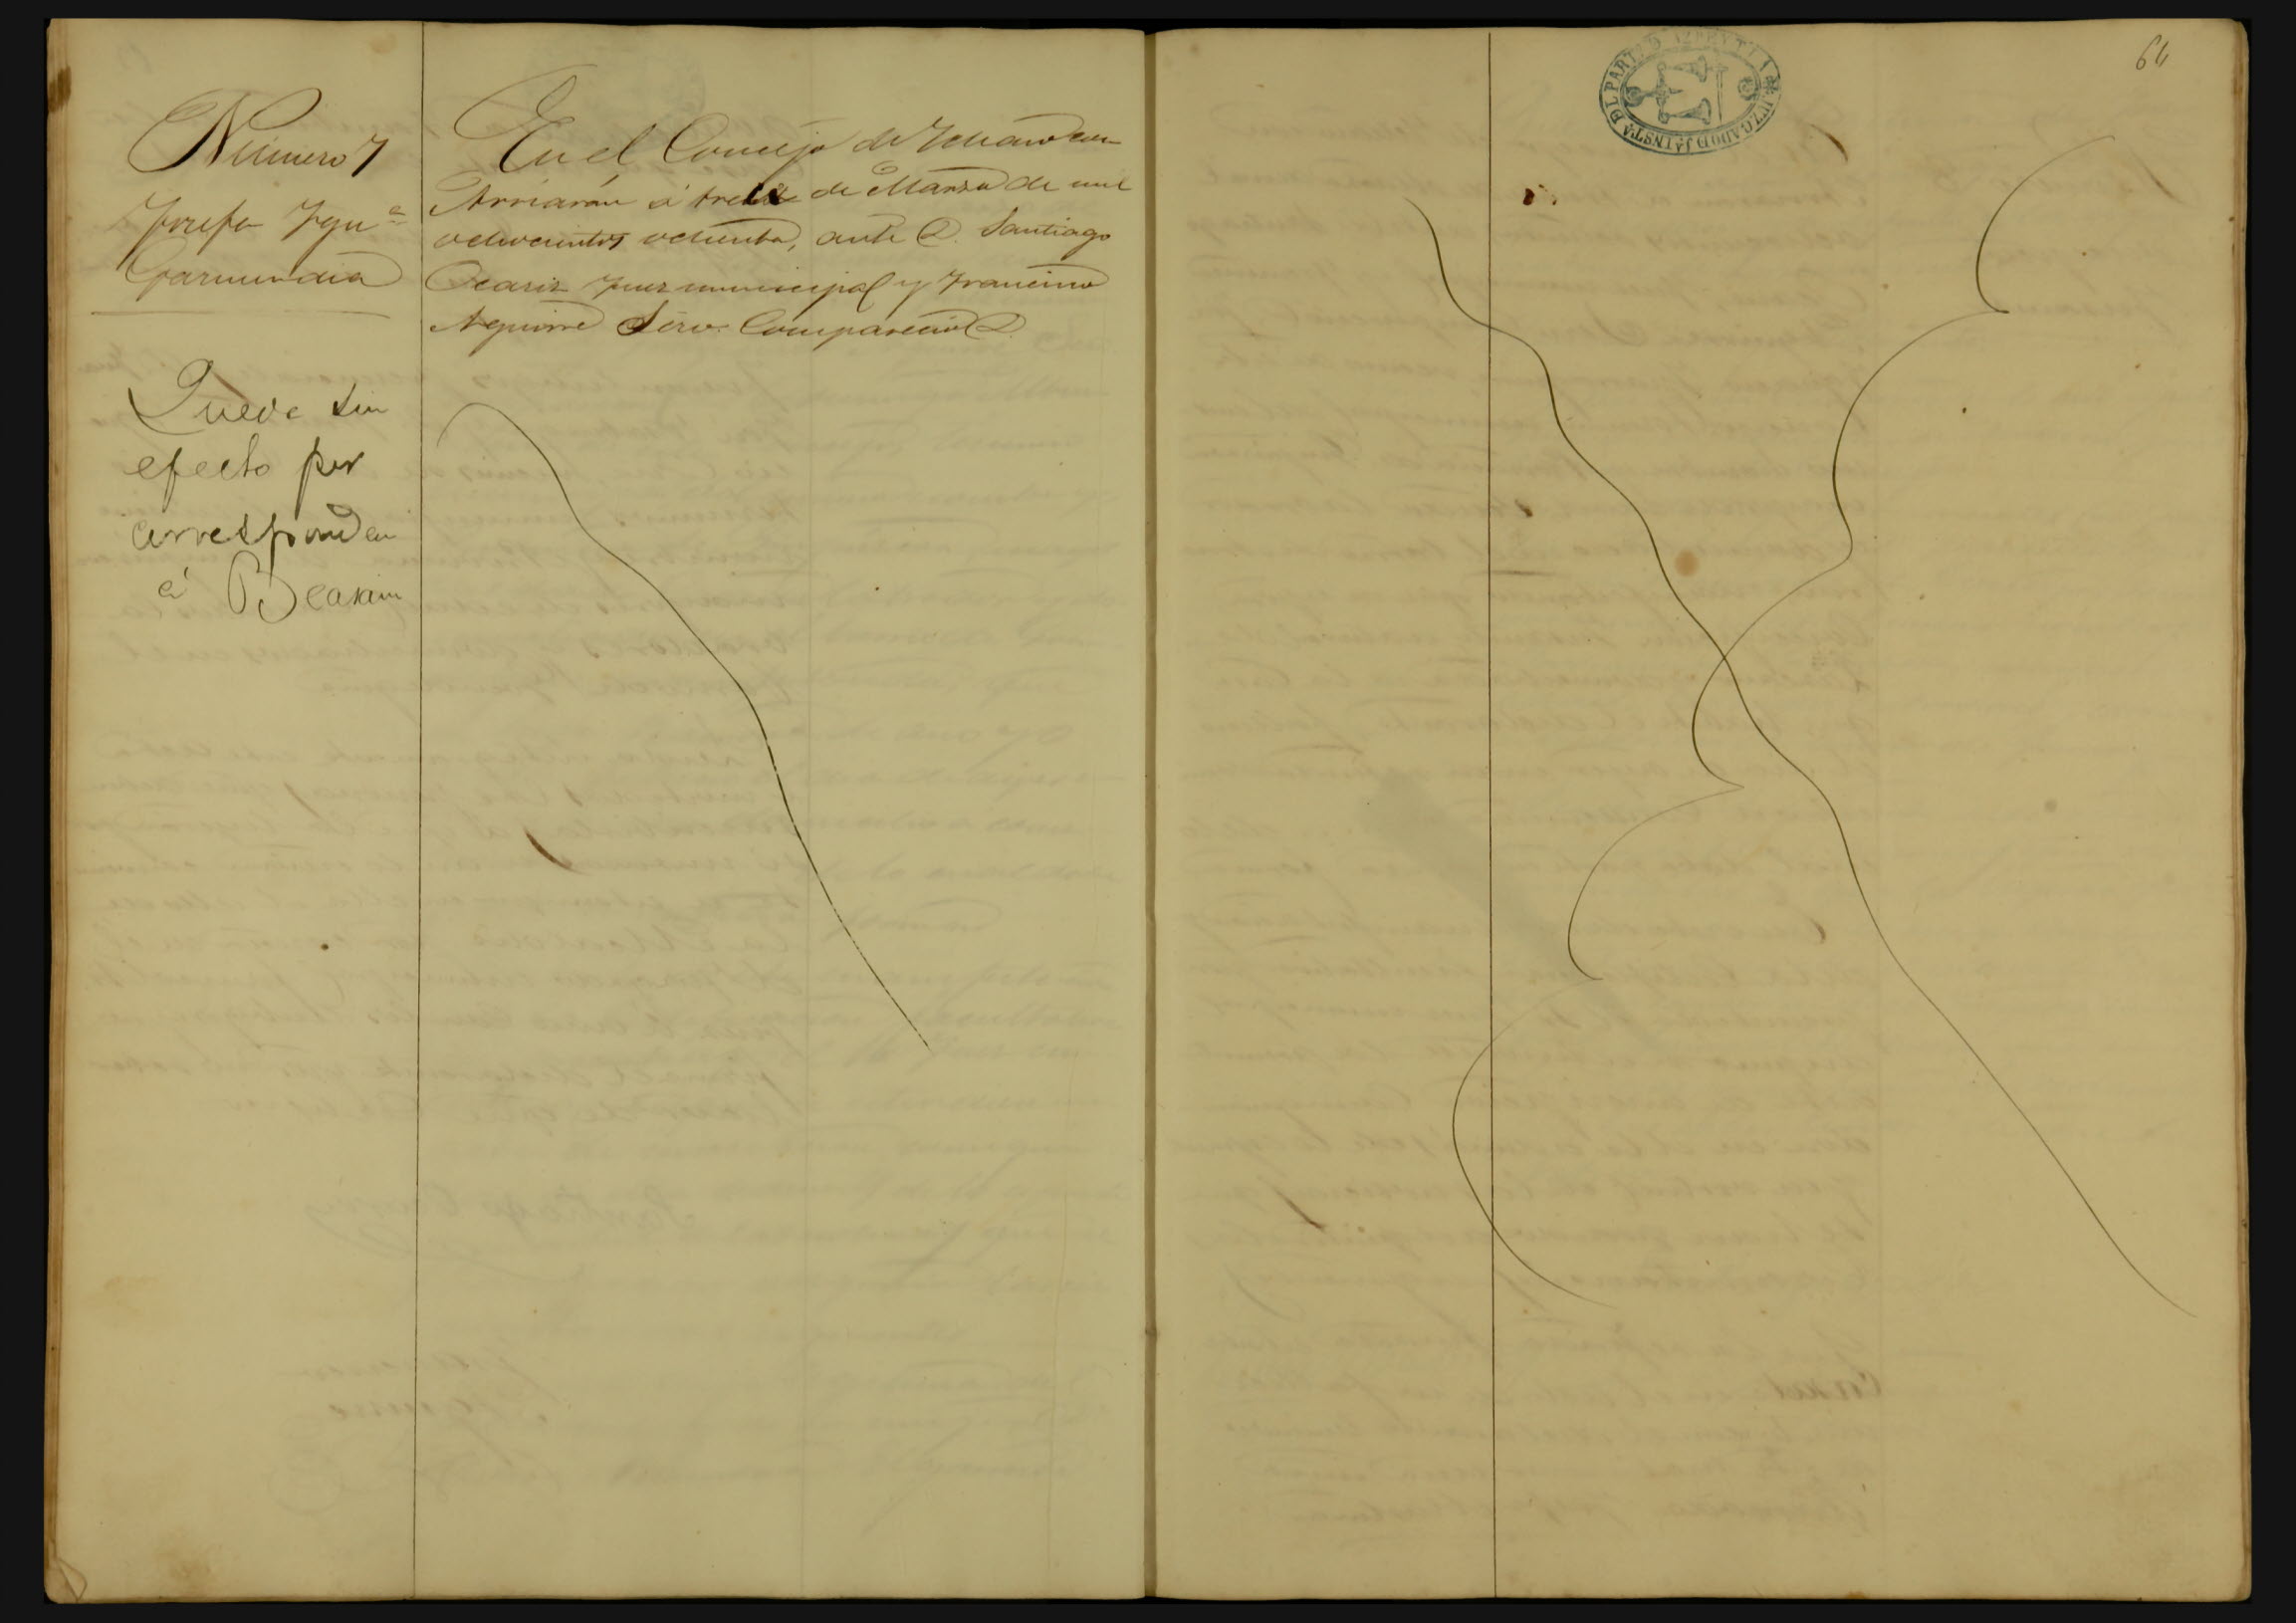 Número 7
Josefa Ign.ª
Garmendia
Quede sin
efecto por
corresponder
á Beasain
En el Concejo de Ichaso con
Arriarán á trece de Marzo de mil
ochocientos ochenta, ante D. Santiago
Ocariz Juez municipal y Francisco
Aguirre Srio. Compareció D.
JUZGADO D JA INSTA DL PARTIDO AZPEYTIA